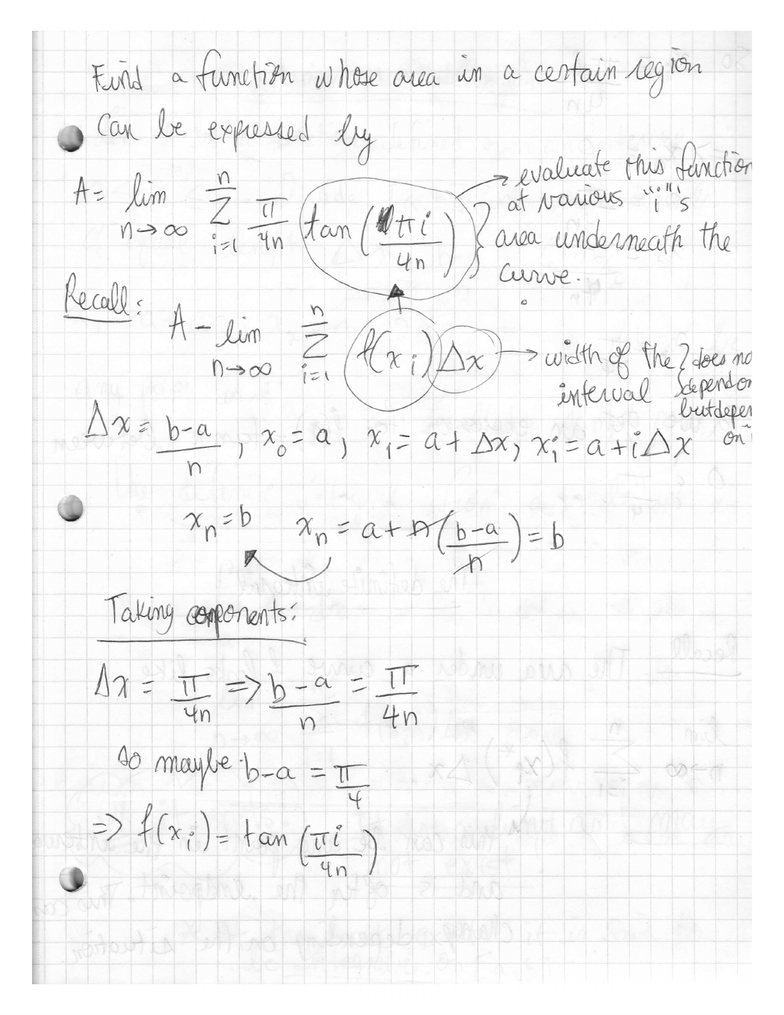 Find a function whose area in a certain region
can be expressed by
A = lim n→∞ n Σ i=1 π/4n tan (πi/4n) } → evaluate this function
at various "i"'s
area underneath the
curve.
Recall:
A - lim n→∞ n Σ i=1 f(xi) Δx → width of the interval } does no
depend on
but depen
on
Δx = b-a/n , x₀ = a, x₁ = a + Δx, xi = a + iΔx
xn = b xn = a + n(b-a/n) = b
Taking components:
Δx = π/4n ⇒ b-a/n = π/4n
so maybe b-a = π/4
⇒ f(xi) = tan (πi/4n)